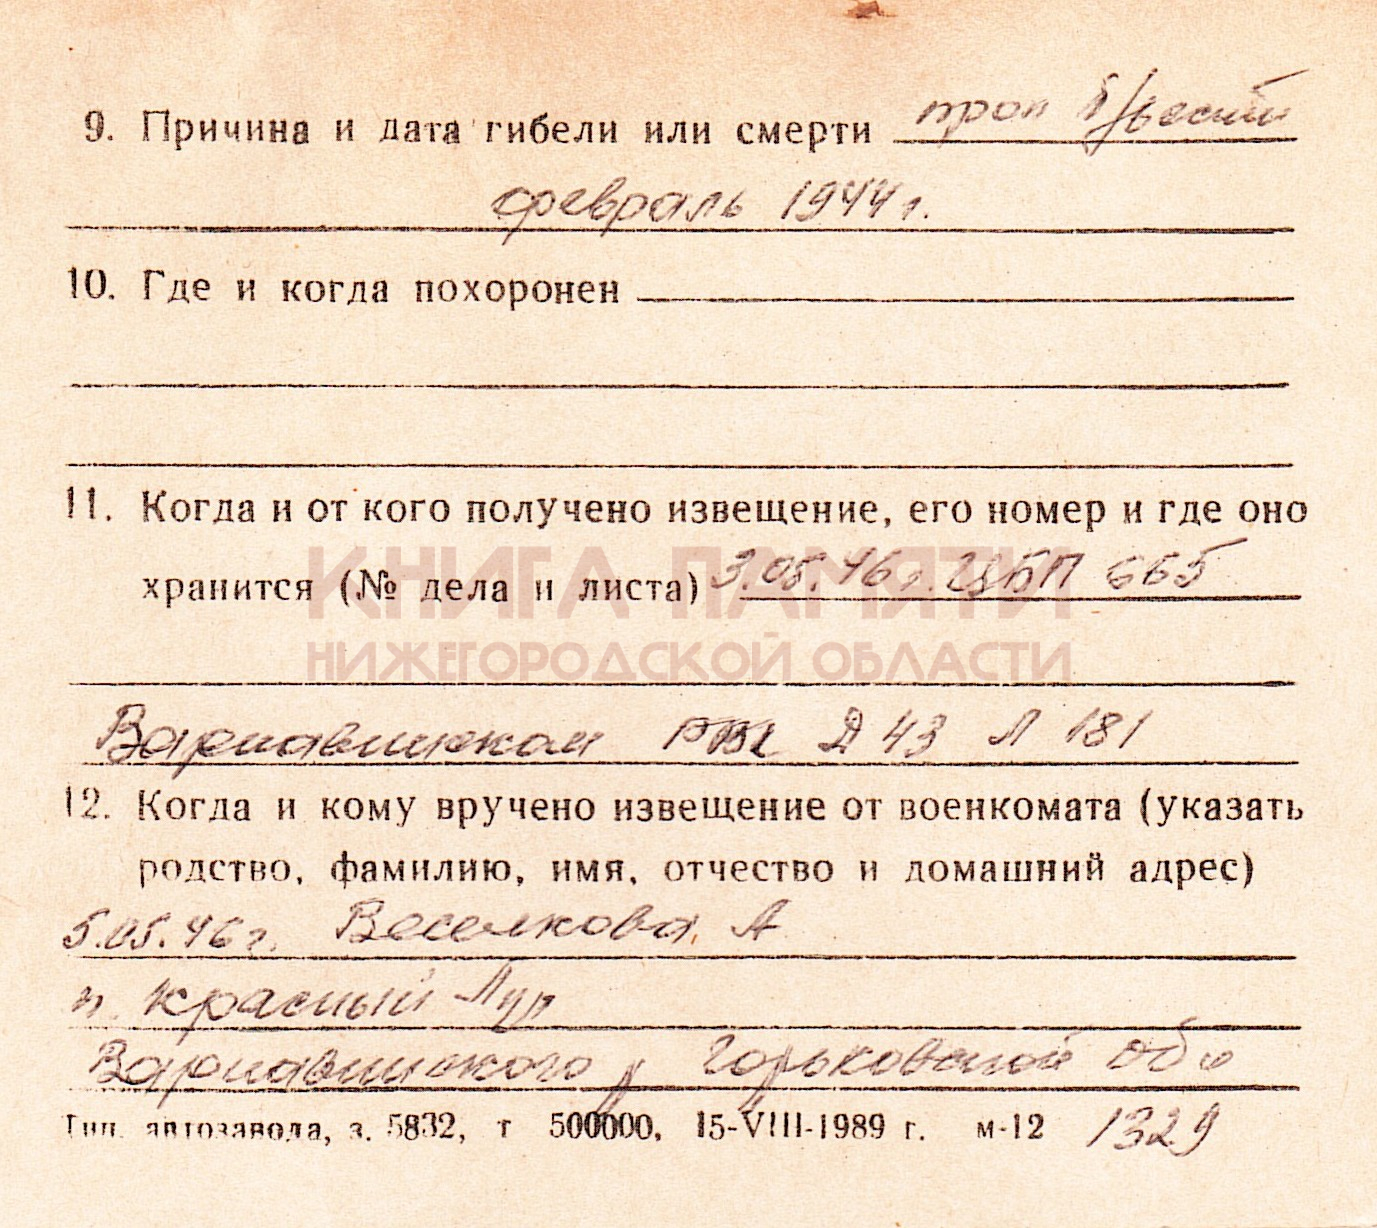 9. Причина и дата гибели или смерти проп б/вести
февраль 1944 г.
10. Где и когда похоронен
11. Когда и от кого получено извещение, его номер и где оно
хранится (№ дела и листа) 3.05.46 г. ЦБП 665
КНИГА ПАМЯТИ
НИЖЕГОРОДСКОЙ ОБЛАСТИ
Варнавинском РВК Д 43 Л 181
12. Когда и кому вручено извещение от военкомата (указать
родство, фамилию, имя, отчество и домашний адрес)
5.05.46 г. Веселкова А
п. Красный
Варнавинского р Горьковской обл
Тип. автозавода, з. 5832, т 500000, 15-VIII-1989 г. м-12 1329